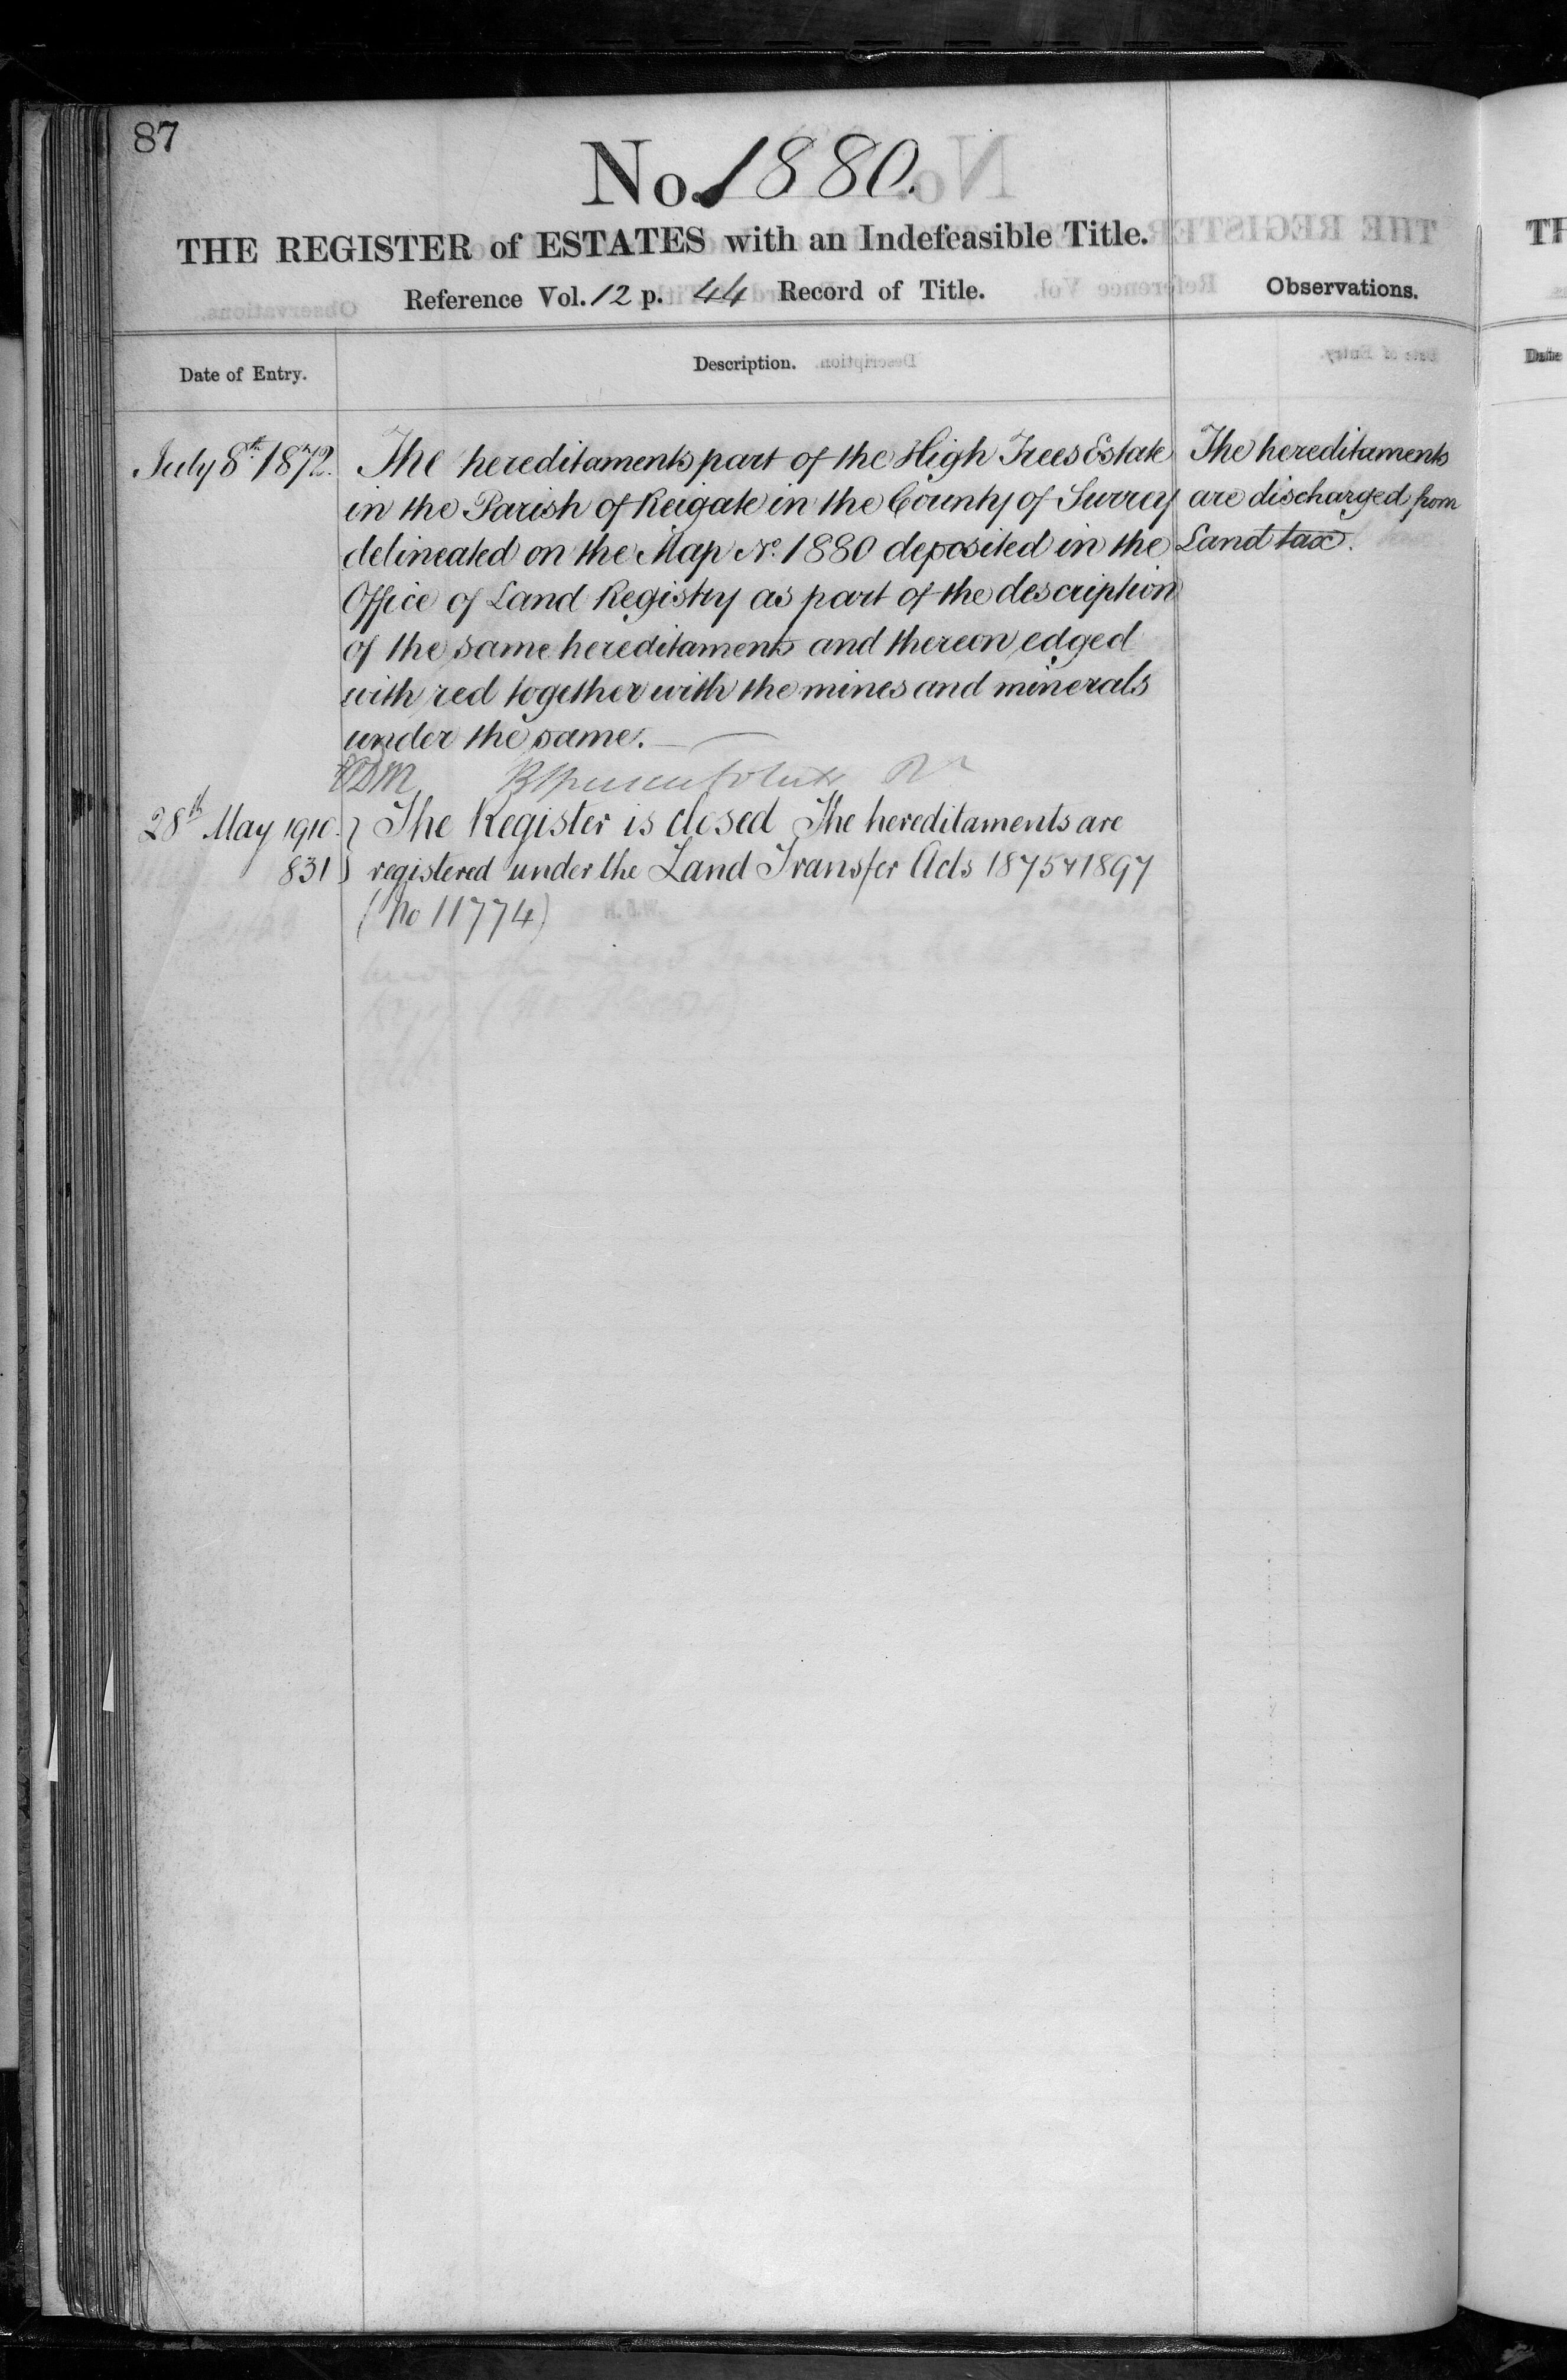 87
No. 1880.
THE REGISTER of ESTATES with an Indefeasible Title.
Reference Vol. 12 p. 44 Record of Title.
Observations.
Date of Entry.
Description.
July 8th 1872.
The hereditaments part of the High Trees Estate
in the Parish of Reigate in the County of Surrey
delineated on the Map No. 1880 deposited in the
Office of Land Registry as part of the description
of the same hereditaments and thereon edged
with red together with the mines and minerals
under the same.
The hereditaments
are discharged from
Land tax.
28th May 1910.
831
The Register is closed The hereditaments are
registered under the Land Transfer Acts 1875 & 1897
(No 11774)
TH
Date